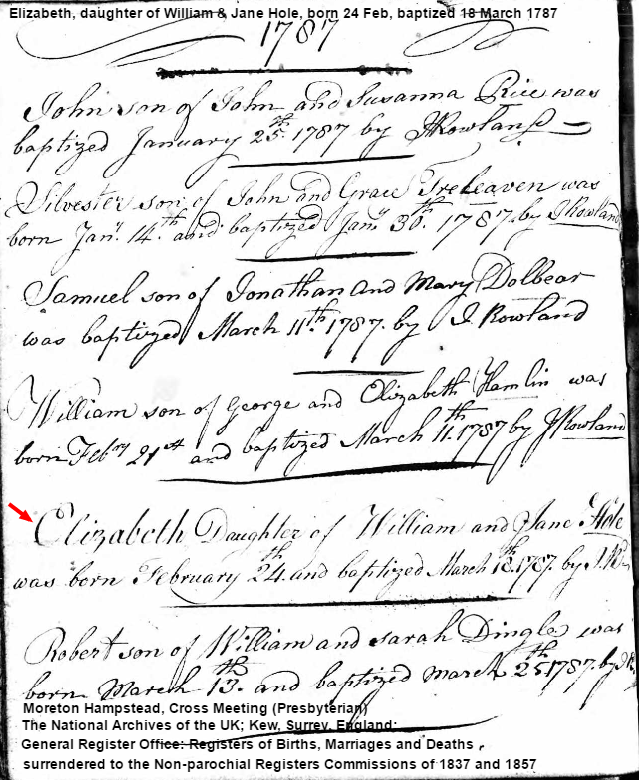 Elizabeth, daughter of William & Jane Hole, born 24 Feb, baptized 18 March 1787
1787
John son of John and Susanna Rice was
baptized January 25th. 1787 by JRowland
Silvester son of John and Grace Treleaven was
born Jany. 14th. and baptized Jany 30th. 1787 by JRowland
Samuel son of Jonathan and Mary Dolbear
was baptized March 11th. 1787. by J. Rowland
William son of George and Elizabeth Hamlin was
born Febry 21st and baptized March 11th. 1787 by JRowland
Elizabeth Daughter of William and Jane Hole
was born February 24th. and baptized March 18th. 1787. by J.R
Robert son of William and Sarah Dingle was
born March 13th. and baptized March 25th 1787. by JR
Moreton Hampstead, Cross Meeting (Presbyterian)
The National Archives of the UK; Kew, Surrey, England;
General Register Office: Registers of Births, Marriages and Deaths
surrendered to the Non-parochial Registers Commissions of 1837 and 1857